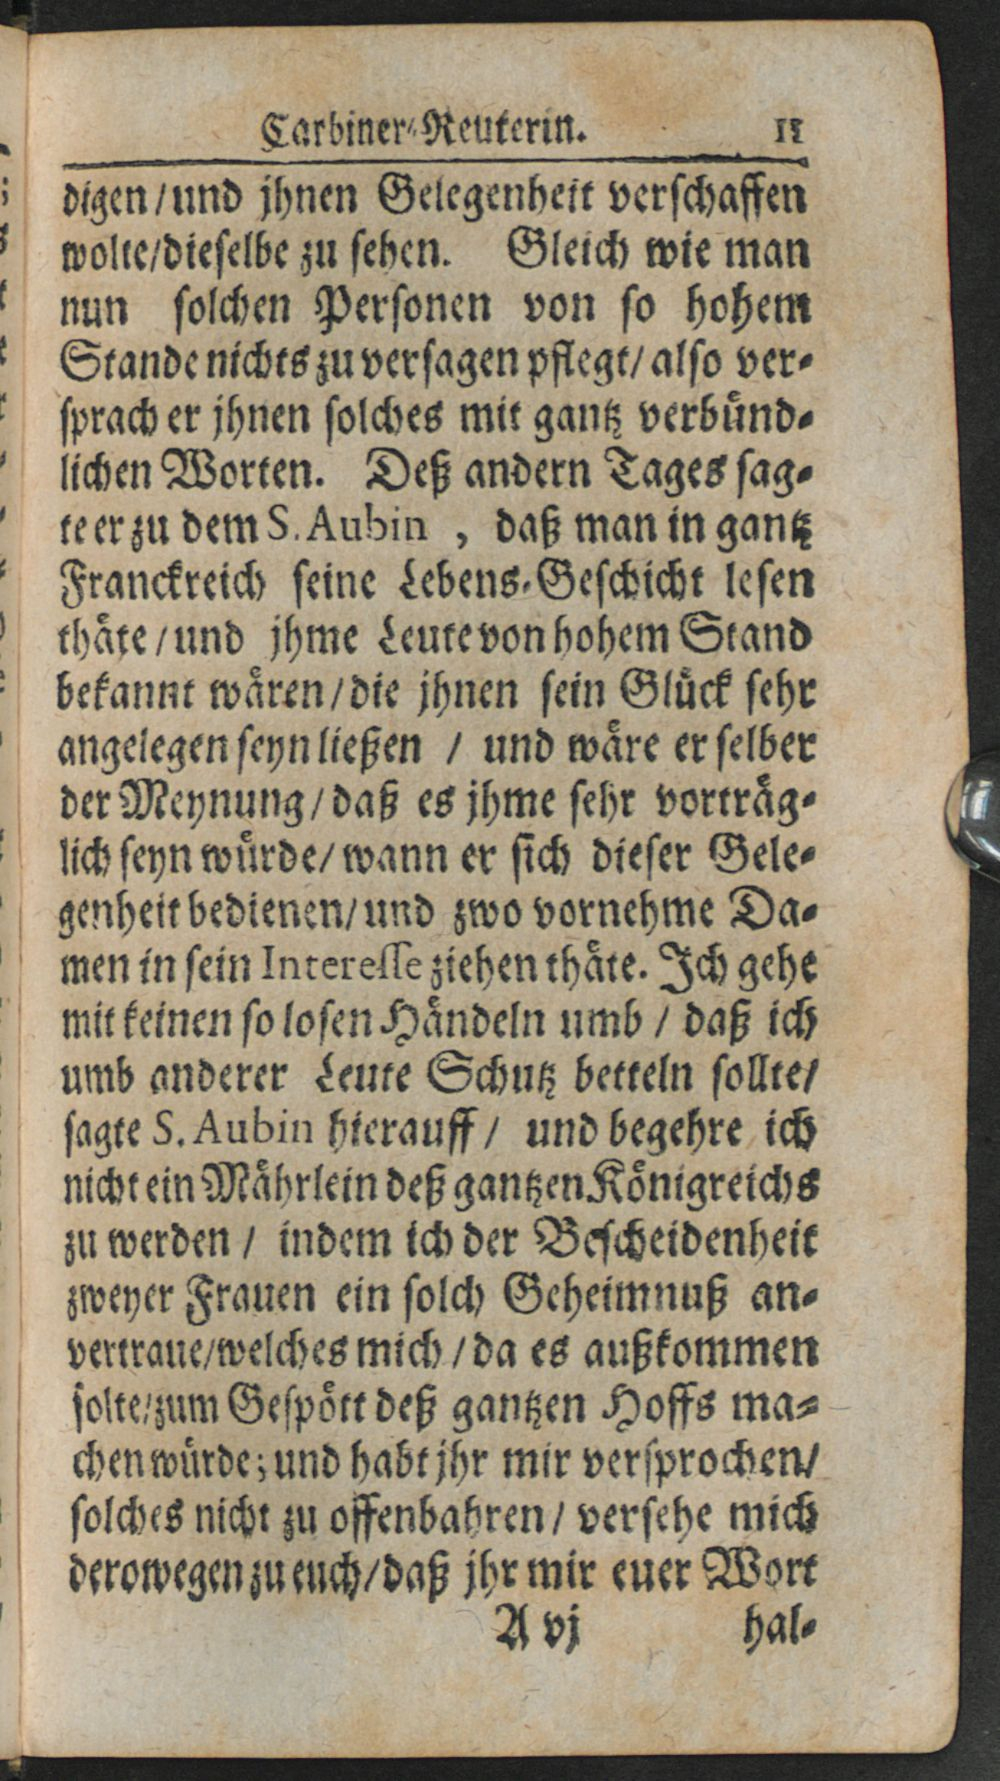 Carbiner-Reuterin. 11
digen / und jhnen Gelegenheit verschaffen
wolte/dieselbe zu sehen. Gleich wie man
nun solchen Personen von so hohem
Stande nichts zu versagen pflegt/ also ver-
sprach er jhnen solches mit gantz verbünd-
lichen Worten. Deß andern Tages sag-
te er zu dem S. Aubin , daß man in gantz
Franckreich seine Lebens-Geschicht lesen
thäte / und jhme Leute von hohem Stand
bekannt wären / die jhnen sein Glück sehr
angelegen seyn ließen / und wäre er selber
der Meynung / daß es jhme sehr vorträg-
lich seyn würde/ wann er sich dieser Gele-
genheit bedienen/ und zwo vornehme Da-
men in sein Interesse ziehen thäte. Ich gehe
mit keinen so losen Händeln umb / daß ich
umb anderer Leute Schutz betteln sollte/
sagte S. Aubin hierauff / und begehre ich
nicht ein Mährlein deß gantzen Königreichs
zu werden / indem ich der Bescheidenheit
zweyer Frauen ein solch Geheimnuß an-
vertraue/welches mich / da es außkommen
solte/zum Gespött deß gantzen Hoffs ma-
chen würde; und habt jhr mir versprochen/
solches nicht zu offenbahren / versehe mich
derowegen zu euch/daß jhr mir euer Wort
A vj hal-